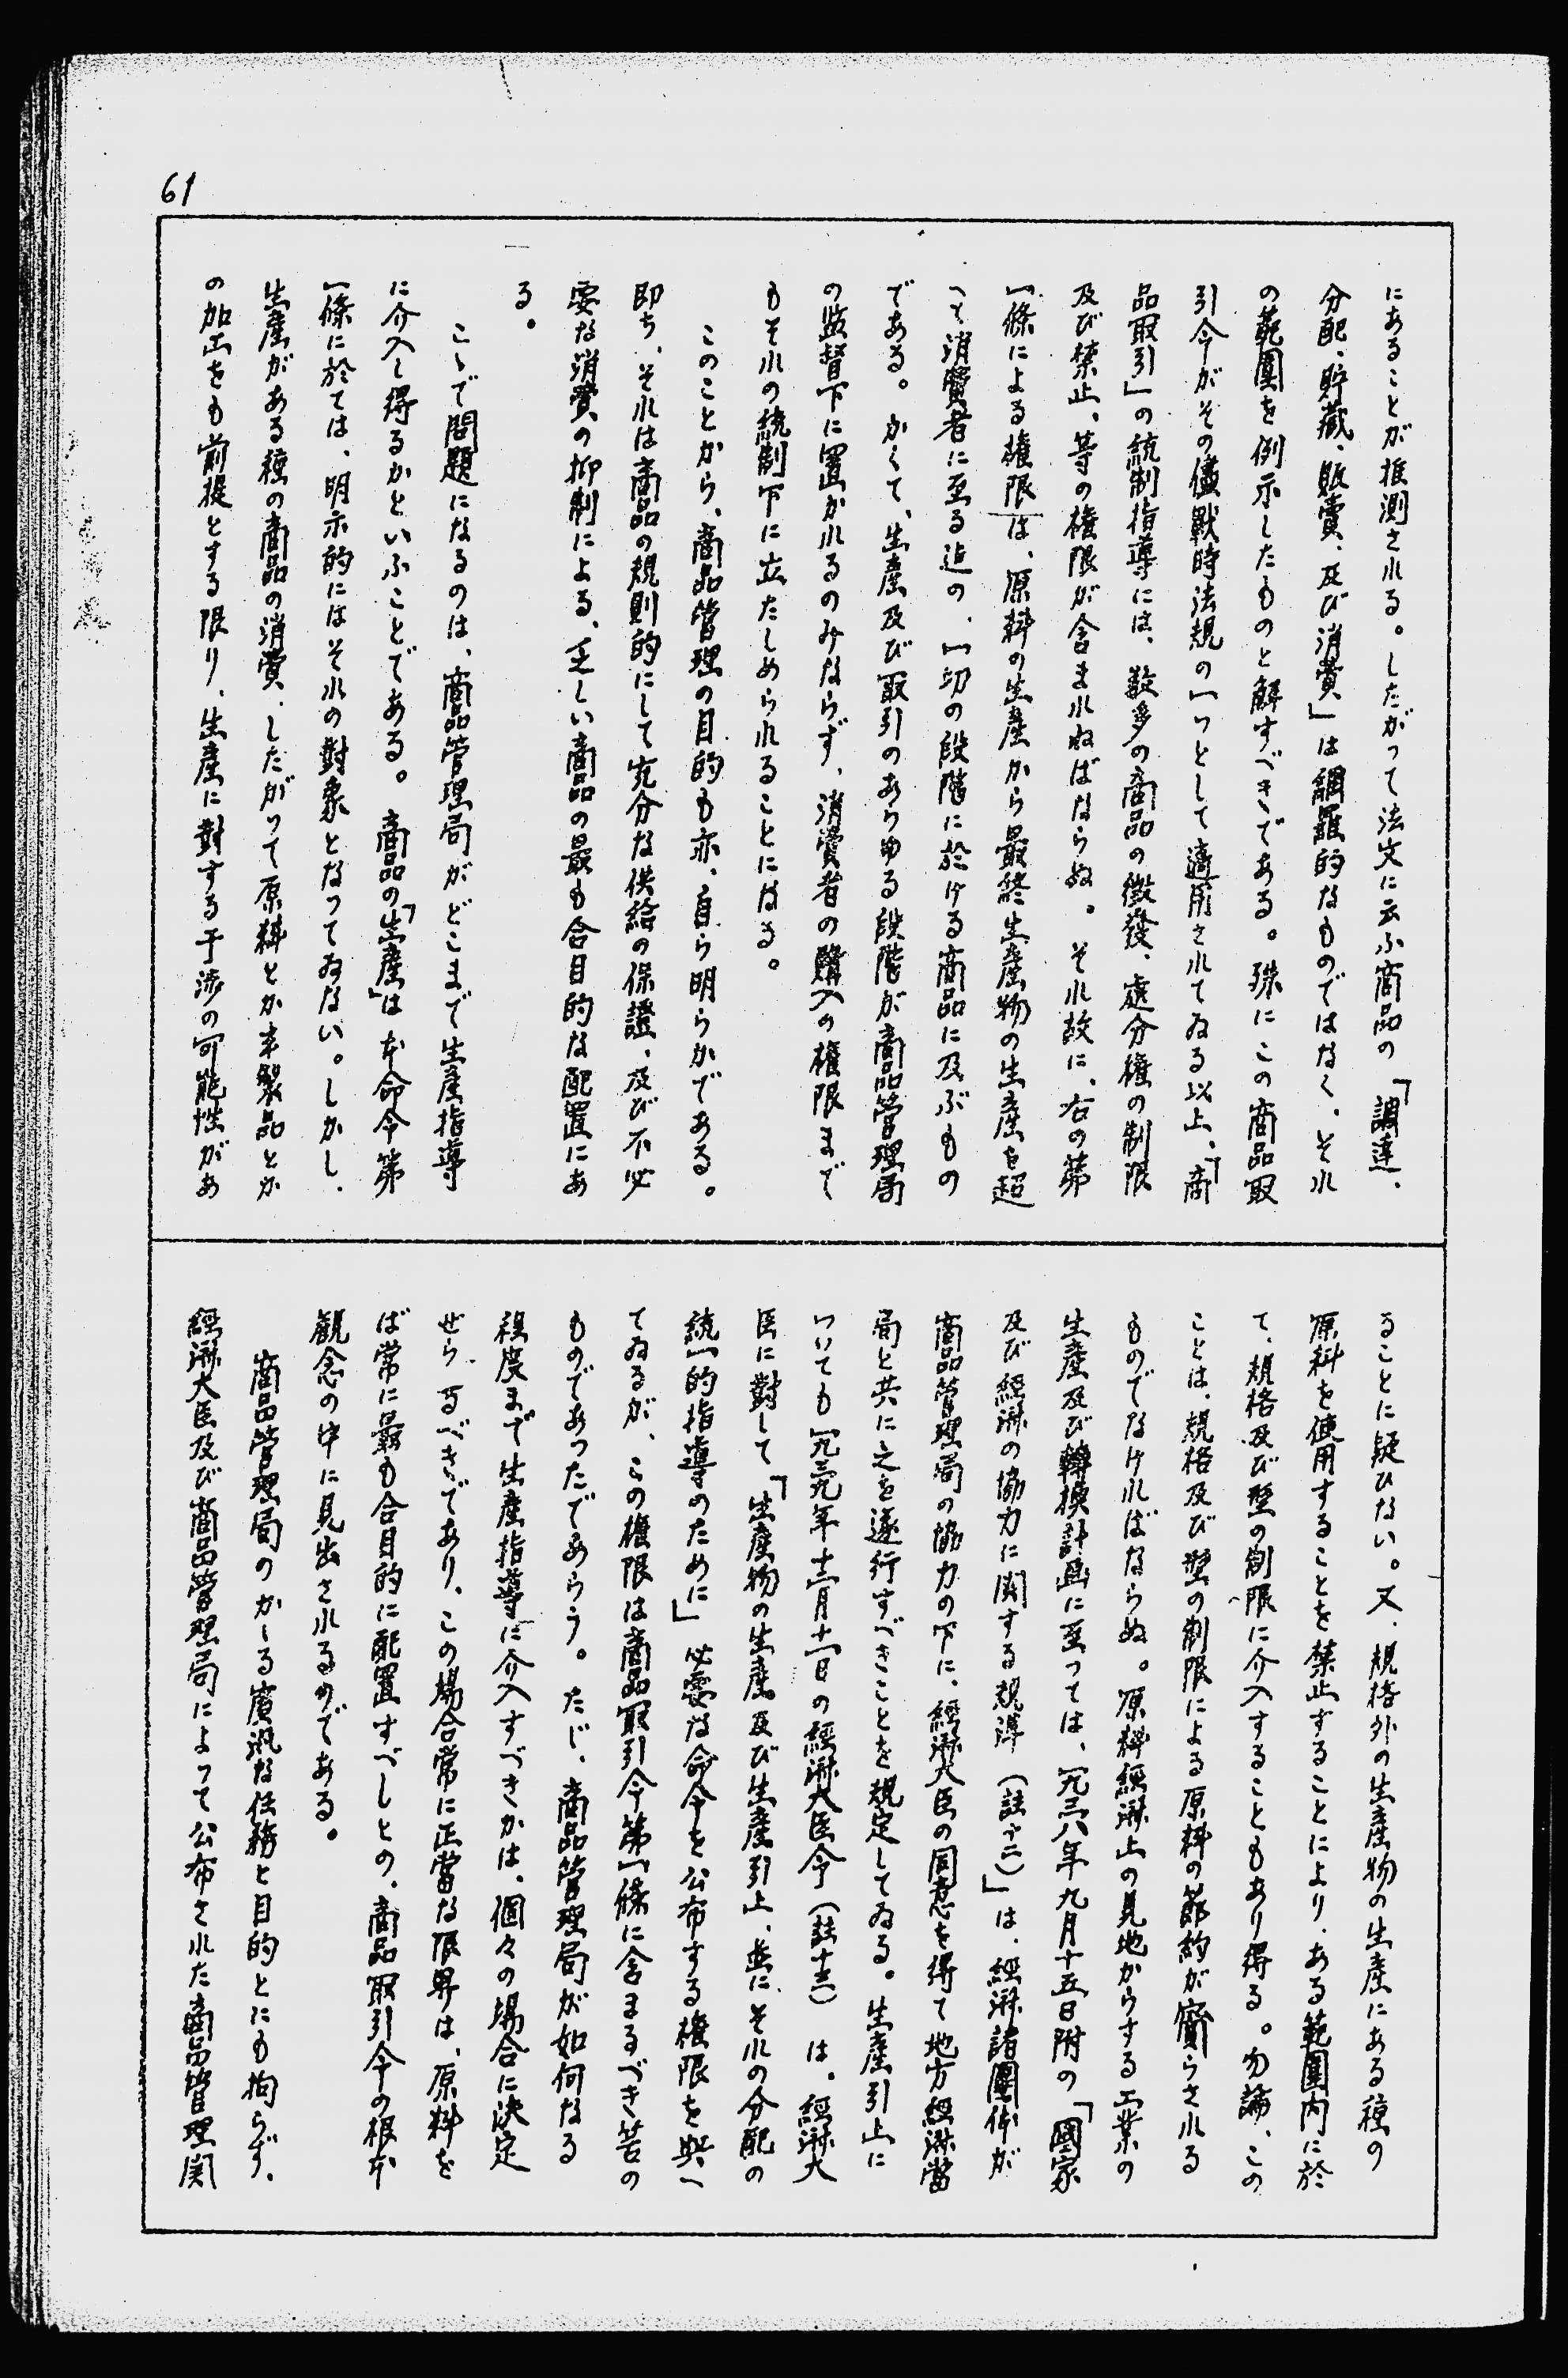 61
にあることが推測される。したがって法文に云ふ商品の「調達、
分配、貯蔵、販賣、及び消費」は網羅的なものではなく、それ
の範圍を例示したものと解すべきである。殊にこの商品取
引令がその儘戰時法規の一つとして適用されてゐる以上、「商
品取引」の統制指導には、数多の商品の徴發、處分権の制限
及び禁止、等の権限が含まれねばならぬ。それ故に、右の第
一條による権限は、原料の生産から最終生産物の生産を超
へて消費者に至る迄の、一切の段階に於ける商品に及ぶもの
である。かくて、生産及び取引のあらゆる段階が商品管理局
の監督下に置かれるのみならず、消費者の購入の権限まで
もそれの統制下に立たしめられることになる。
このことから、商品管理の目的も亦、自ら明らかである。
即ち、それは商品の規則的にして充分な供給の保證、及び不必
要な消費の抑制による、乏しい商品の最も合目的な配置にあ
る。
こゝで問題になるのは、商品管理局がどこまで生産指導
に介入し得るかといふことである。商品の「生産」は本命令第
一條に於ては、明示的にはそれの對象となってゐない。しかし、
生産がある種の商品の消費、したがって原料とか半製品とか
の加工をも前提とする限り、生産に對する干渉の可能性があ
ることに疑ひない。又、規格外の生産物の生産にある種の
原料を使用することを禁止することにより、ある範圍内に於
て、規格及び型の制限に介入することもあり得る。勿論、この
ことは、規格及び型の制限による原料の節約が齎らされる
ものでなければならぬ。原料経済上の見地からする工業の
生産及び轉換計画に至っては、一九三八年九月十五日附の「國家
及び経済の協力に関する規準（註十二）」は、経済諸團体が
商品管理局の協力の下に、経済大臣の同意を得て地方経済當
局と共に之を遂行すべきことを規定してゐる。生産引上に
ついても一九三九年十二月十一日の経済大臣令（註十三）は、経済大
臣に對して「生産物の生産及び生産引上、並にそれの分配の
統一的指導のために」必要な命令を公布する権限を與へ
てゐるが、らの権限は商品取引令第一條に含まるべき筈の
ものであったであらう。たじ、商品管理局が如何なる
程度まで生産指導に介入すべきかは、個々の場合に決定
せらるべきであり、この場合常に正當な限界は、原料を
ば常に最も合目的に配置すべしとの、商品取引令の根本
観念の中に見出されるのである。
商品管理局のかゝる廣汎な任務と目的とにも拘らず、
経済大臣及び商品管理局によって公布された商品管理関